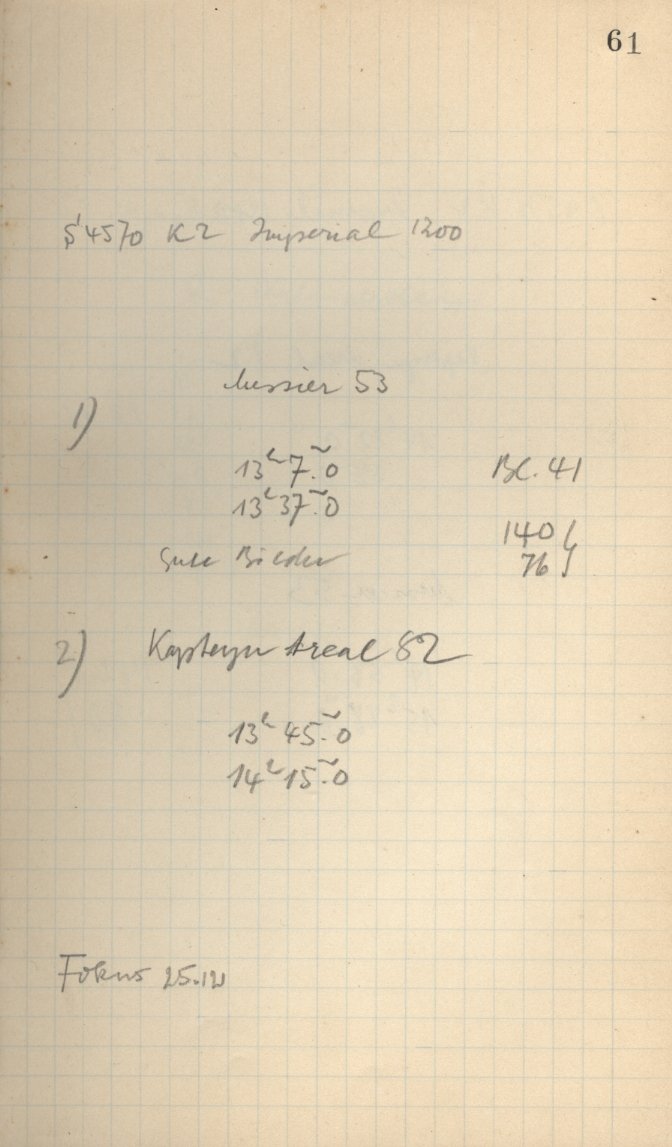 61
S 4570 K2 Imperial 1200
Messier 53
1)
13ʰ 7ᵐ.0 Bl. 41
13ʰ 37ᵐ.0
140
Gute Bilder 76
2) Kapteyn Areal 82
13ʰ 45ᵐ.0
14ʰ 15ᵐ.0
Fokus 25.12